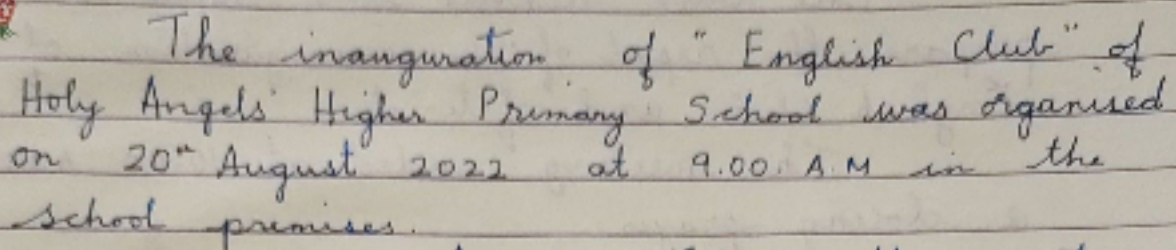 The inauguration of "English Club" of
Holy Angels' Higher Primary School was organised
on 20th August 2022 at 9.00. A.M in the
school premises.